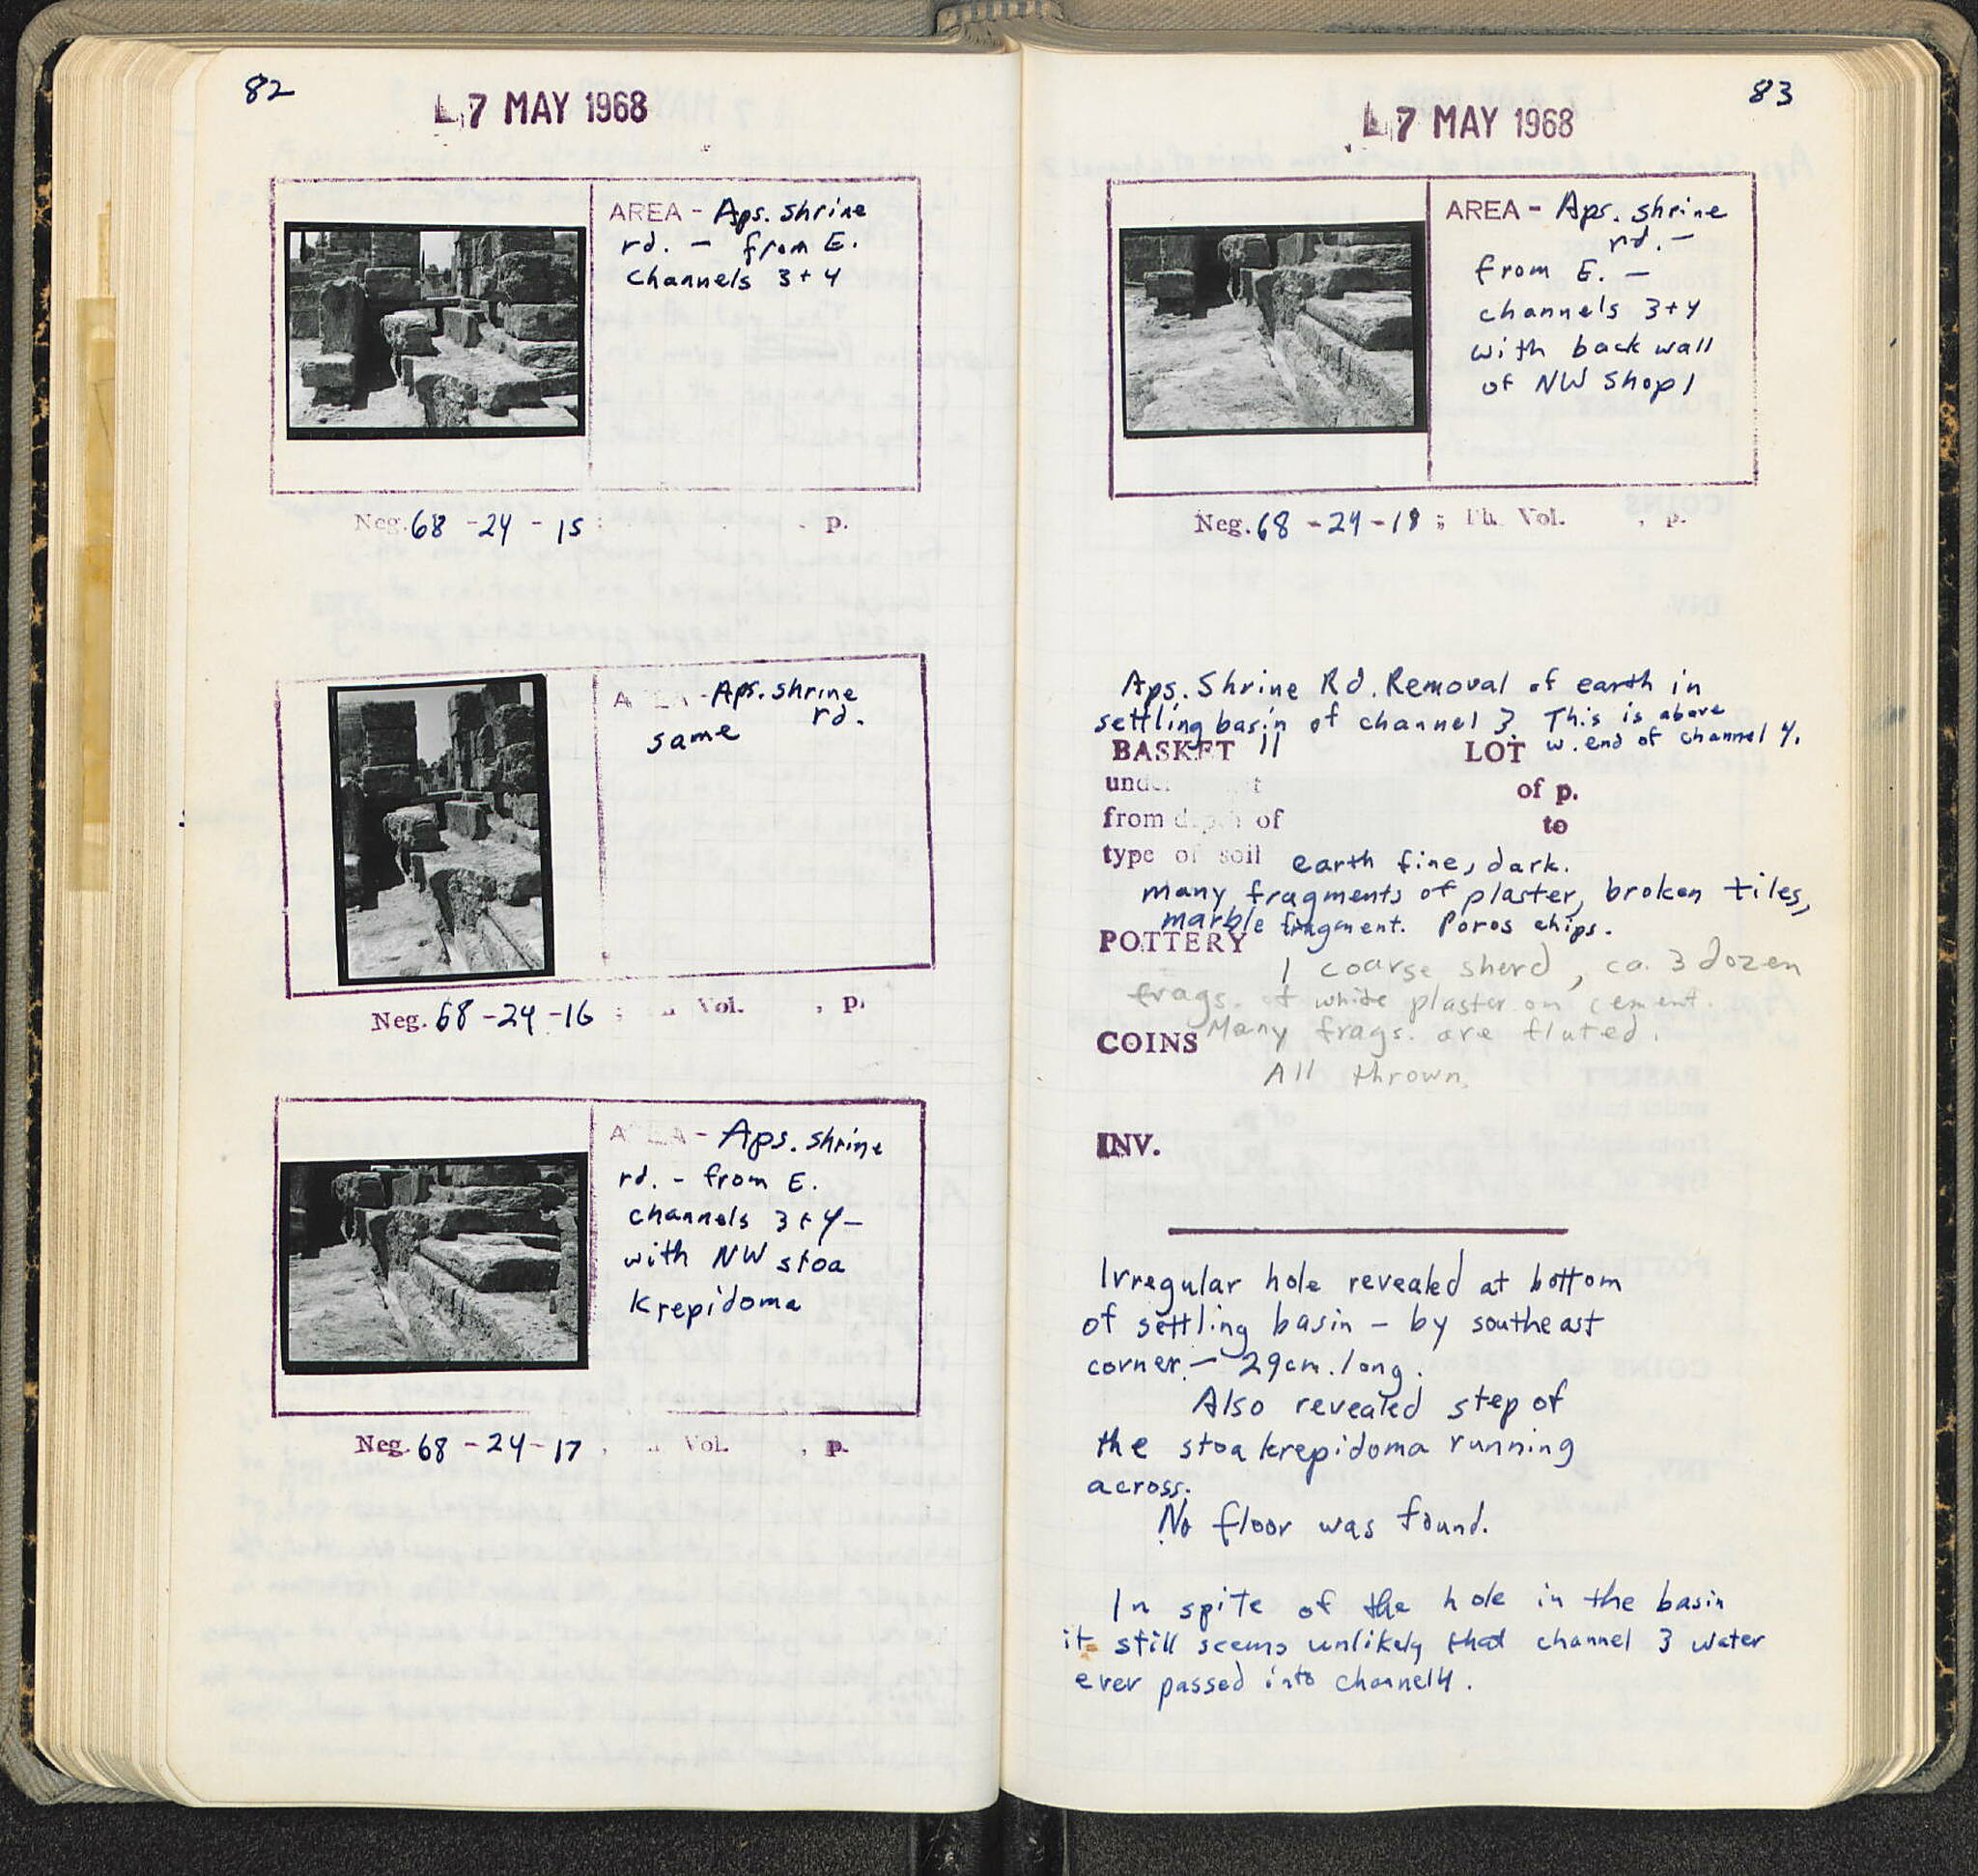 82
7 MAY 1968
AREA - Aps. shrine
rd. - from E.
Channels 3+4
Neg. 68 - 24 - 15 ; , p.
Aps. shrine
rd.
same
Neg. 68 - 24 - 16 ; Vol. , p.
Aps. shrine
rd. - from E.
channels 3+4 -
with NW stoa
Krepidoma
Neg. 68 - 24 - 17 ; Vol. , p.
83
7 MAY 1968
AREA - Aps. shrine
rd. -
from E. -
channels 3+4
with back wall
of NW shop 1
Neg. 68 - 24 - 18 ; Ph. Vol. , p.
Aps. Shrine Rd. Removal of earth in
settling basin of channel 3. This is above
w. end of channel 4.
BASKET 11 LOT
of p.
from depth of to
type of soil earth fine, dark.
many fragments of plaster, broken tiles,
marble fragment. Poros chips.
POTTERY
1 coarse sherd, ca. 3 dozen
frags. of white plaster on cement.
Many frags. are fluted.
COINS
All thrown.
INV.
Irregular hole revealed at bottom
of settling basin - by southeast
corner - 29cm. long.
Also revealed step of
the stoa krepidoma running
across.
No floor was found.
In spite of the hole in the basin
it still seems unlikely that channel 3 water
ever passed into channel 4.